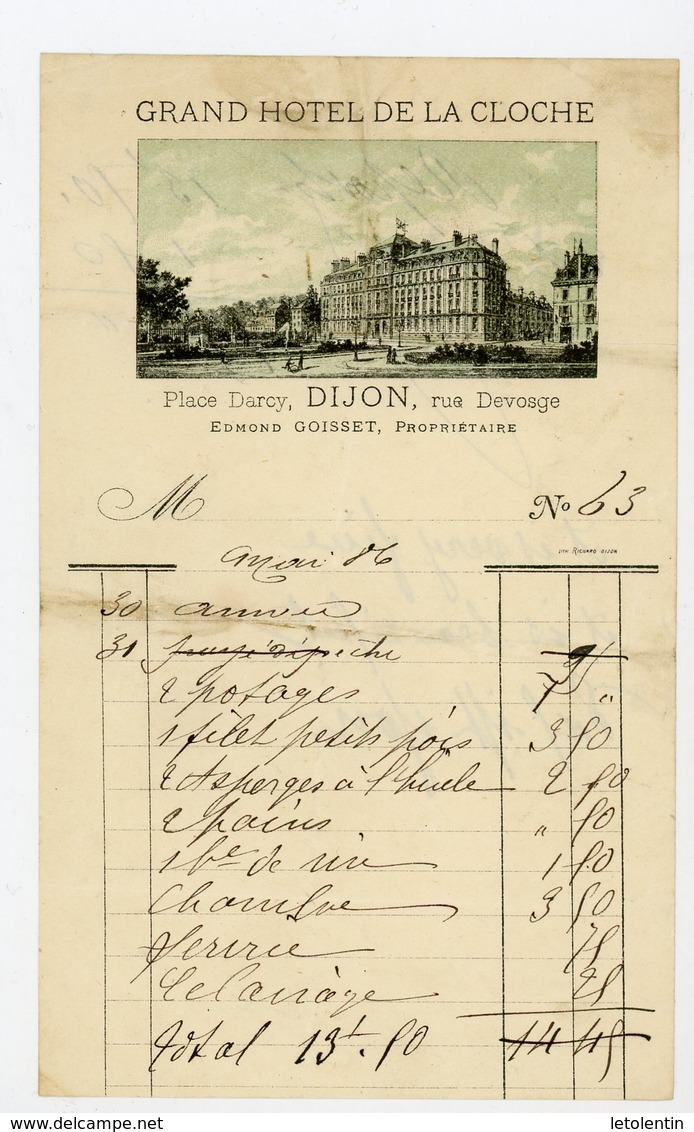 GRAND HOTEL DE LA CLOCHE
Place Darcy, DIJON, rue Devosge
EDMOND GOISSET, PROPRIÉTAIRE
M No 63
LITH RICHARD DIJON
mai 86
30
31
2 potages 1 "
1 filet petits pois 3 50
2 Asperges à l'huile 2 50
2 pains " 50
1 ble de vin 1 50
Chambre 3 50
Service 75
Eclairage 75
Total 13f.50 14 45
delcampe.net
letolentin